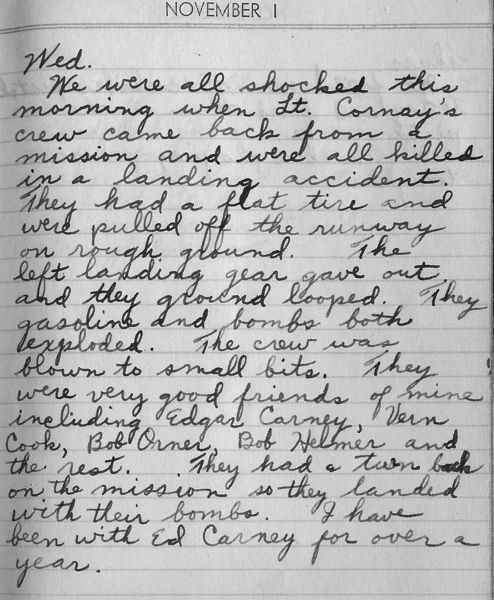 NOVEMBER 1
Wed.
We were all shocked this
morning when Lt. Cornay's
crew came back from a
mission and were all killed
in a landing accident.
They had a flat tire and
were pulled off the runway
on rough ground. The
left landing gear gave out
and they ground looped. They
gasoline and bombs both
exploded. The crew was
blown to small bits. They
were very good friends of mine
including Edgar Carney, Vern
Cook, Bob Orner, Bob Helmer and
the rest. They had a turn back
on the mission so they landed
with their bombs. I have
been with Ed Carney for over a
year.